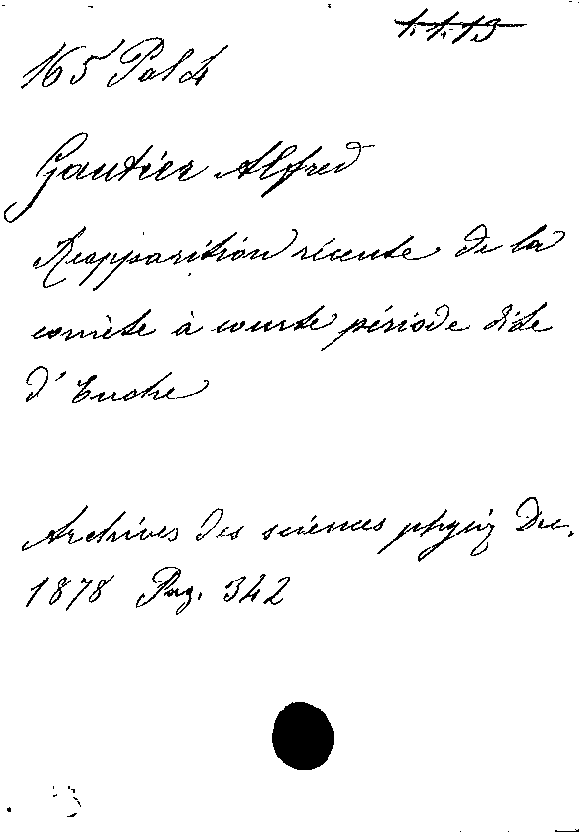 1.1.13
165 Pal 4
Gautier Alfred
Reapparition récente de la
comète à courte période dite
d'Encke
Archives des sciences physiq Dec.
1878 Pag. 342